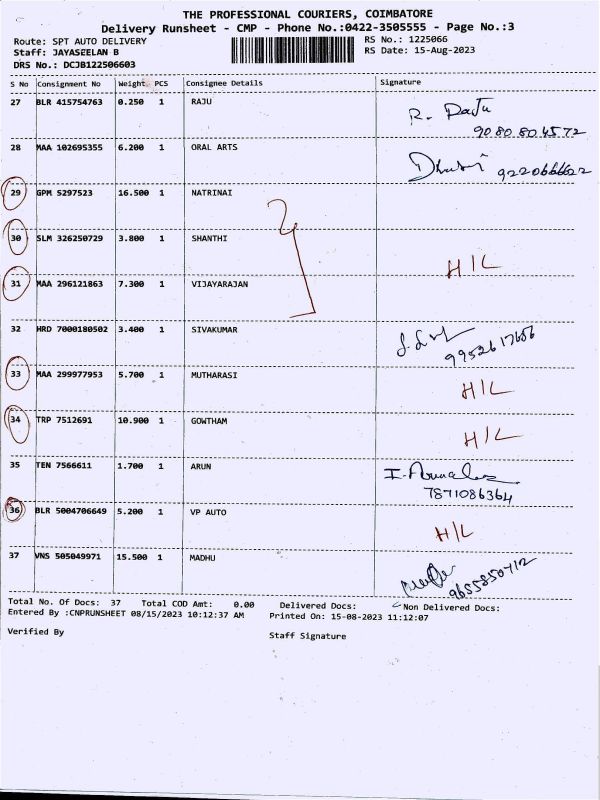 THE PROFESSIONAL COURIERS, COIMBATORE
Delivery Runsheet - CMP - Phone No.:0422-3505555 - Page No.:3
Route: SPT AUTO DELIVERY
RS No.: 1225066
Staff: JAYASEELAN B
RS Date: 15-Aug-2023
DRS No.: DCJB122506603
S No Consignment No Weight PCS Consignee Details Signature
27 BLR 415754763 0.250 1 RAJU R. Raju
9080804572
28 MAA 102695355 6.200 1 ORAL ARTS
9220666622
29 GPM 5297523 16.500 1 NATRINAI
30 SLM 326250729 3.800 1 SHANTHI
H/L
31 MAA 296121863 7.300 1 VIJAYARAJAN
32 HRD 7000180502 3.400 1 SIVAKUMAR
9952617656
33 MAA 299977953 5.700 1 MUTHARASI H/L
34 TRP 7512691 10.900 1 GOWTHAM H/L
35 TEN 7566611 1.700 1 ARUN
7871086364
36 BLR 5004706649 5.200 1 VP AUTO H/L
37 VNS 505049971 15.500 1 MADHU
9655850712
Total No. Of Docs: 37 Total COD Amt: 0.00 Delivered Docs: Non Delivered Docs:
Entered By :CNPRUNSHEET 08/15/2023 10:12:37 AM Printed On: 15-08-2023 11:12:07
Verified By Staff Signature